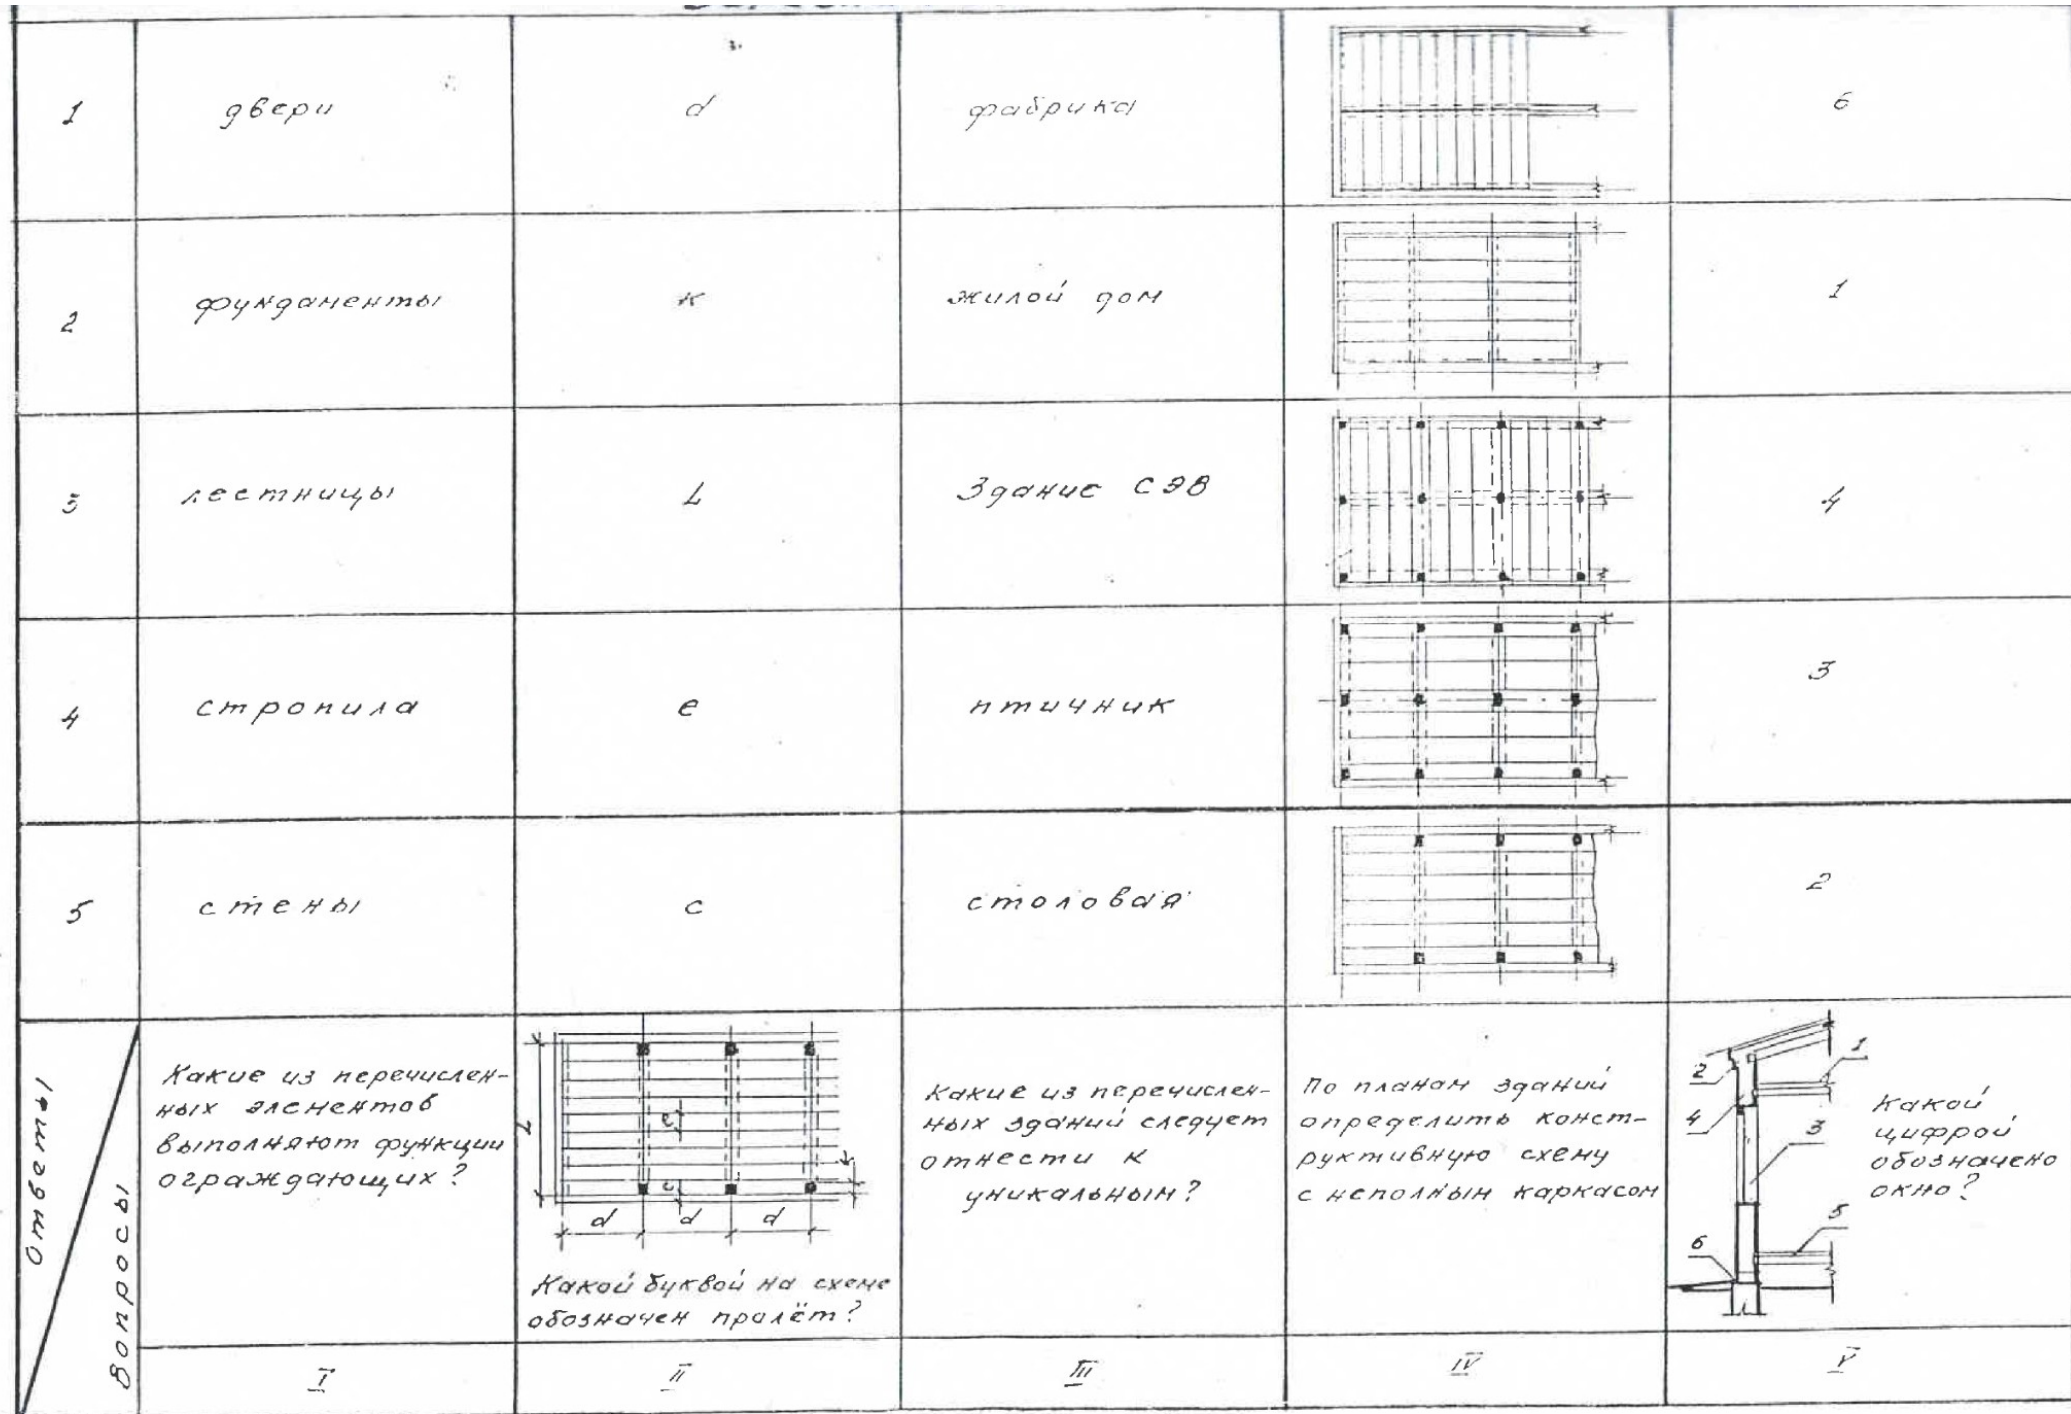 1
двери
d
фабрика
6
2
фундаменты
к
жилой дом
1
3
лестницы
L
Здание СЭВ
4
4
стропила
e
птичник
3
5
стены
c
столовая
2
Ответы
Вопросы
Какие из перечислен-
ных элементов
выполняют функции
ограждающих?
L
e
c
d d d
Какой буквой на схеме
обозначен пролёт?
Какие из перечислен-
ных зданий следует
отнести к
уникальным?
По планам зданий
определить конст-
руктивную схему
с неполным каркасом
1
2
4
3
5
6
Какой
цифрой
обозначено
окно?
I
II
III
IV
V